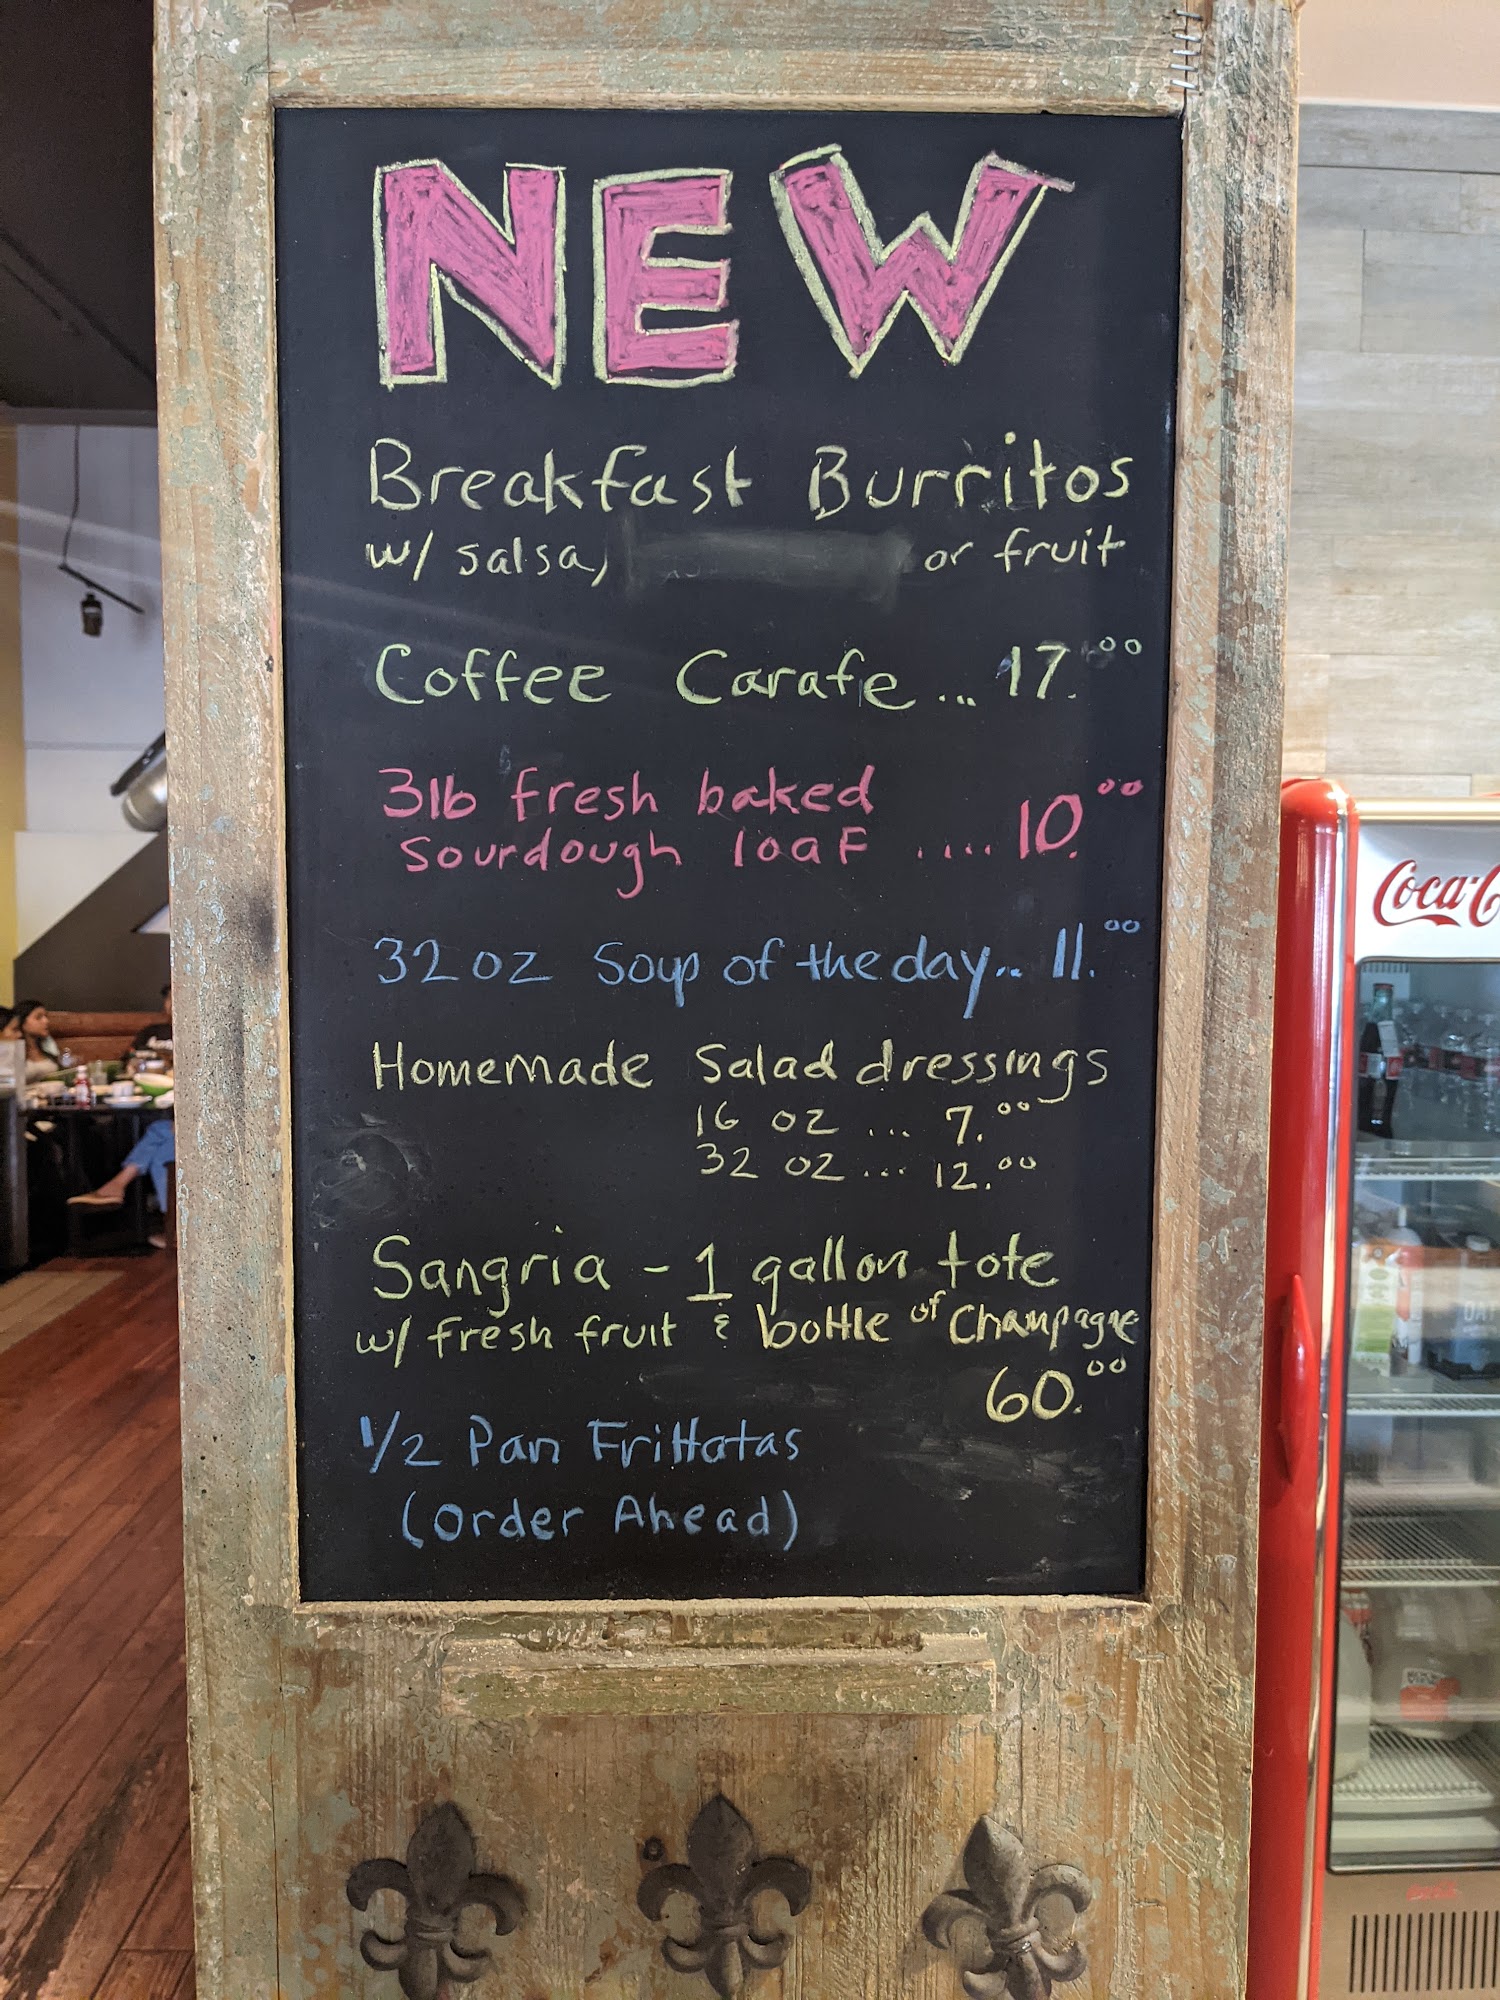 NEW
Breakfast Burritos
w/ salsa, or fruit
Coffee Carafe ... 17.00
3lb fresh baked
sourdough loaf .... 10.00
32 oz Soup of the day... 11.00
Homemade Salad dressings
16 oz ... 7.00
32 oz ... 12.00
Sangria - 1 gallon tote
w/ fresh fruit & bottle of Champagne
60.00
1/2 Pan Frittatas
(Order Ahead)
Coca-C